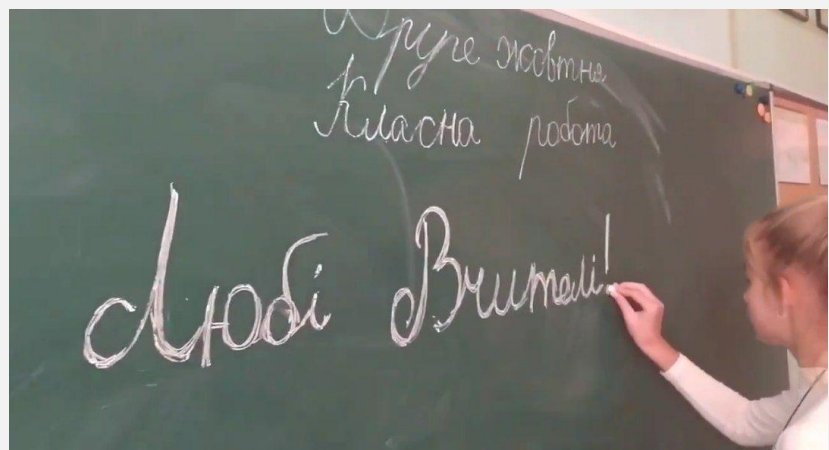 Друге жовтня
Класна робота
Любі Вчителі!